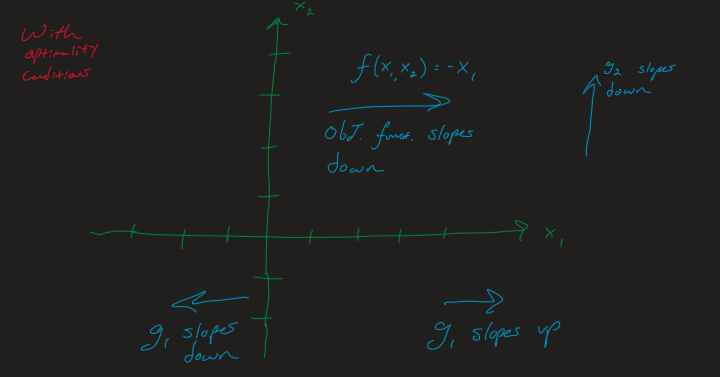 With
optimality
conditions
x₂
f(x₁, x₂) = -x₁
Obj. funct. slopes
down
g₂ slopes
down
x₁
g₁ slopes
down
g₁ slopes up